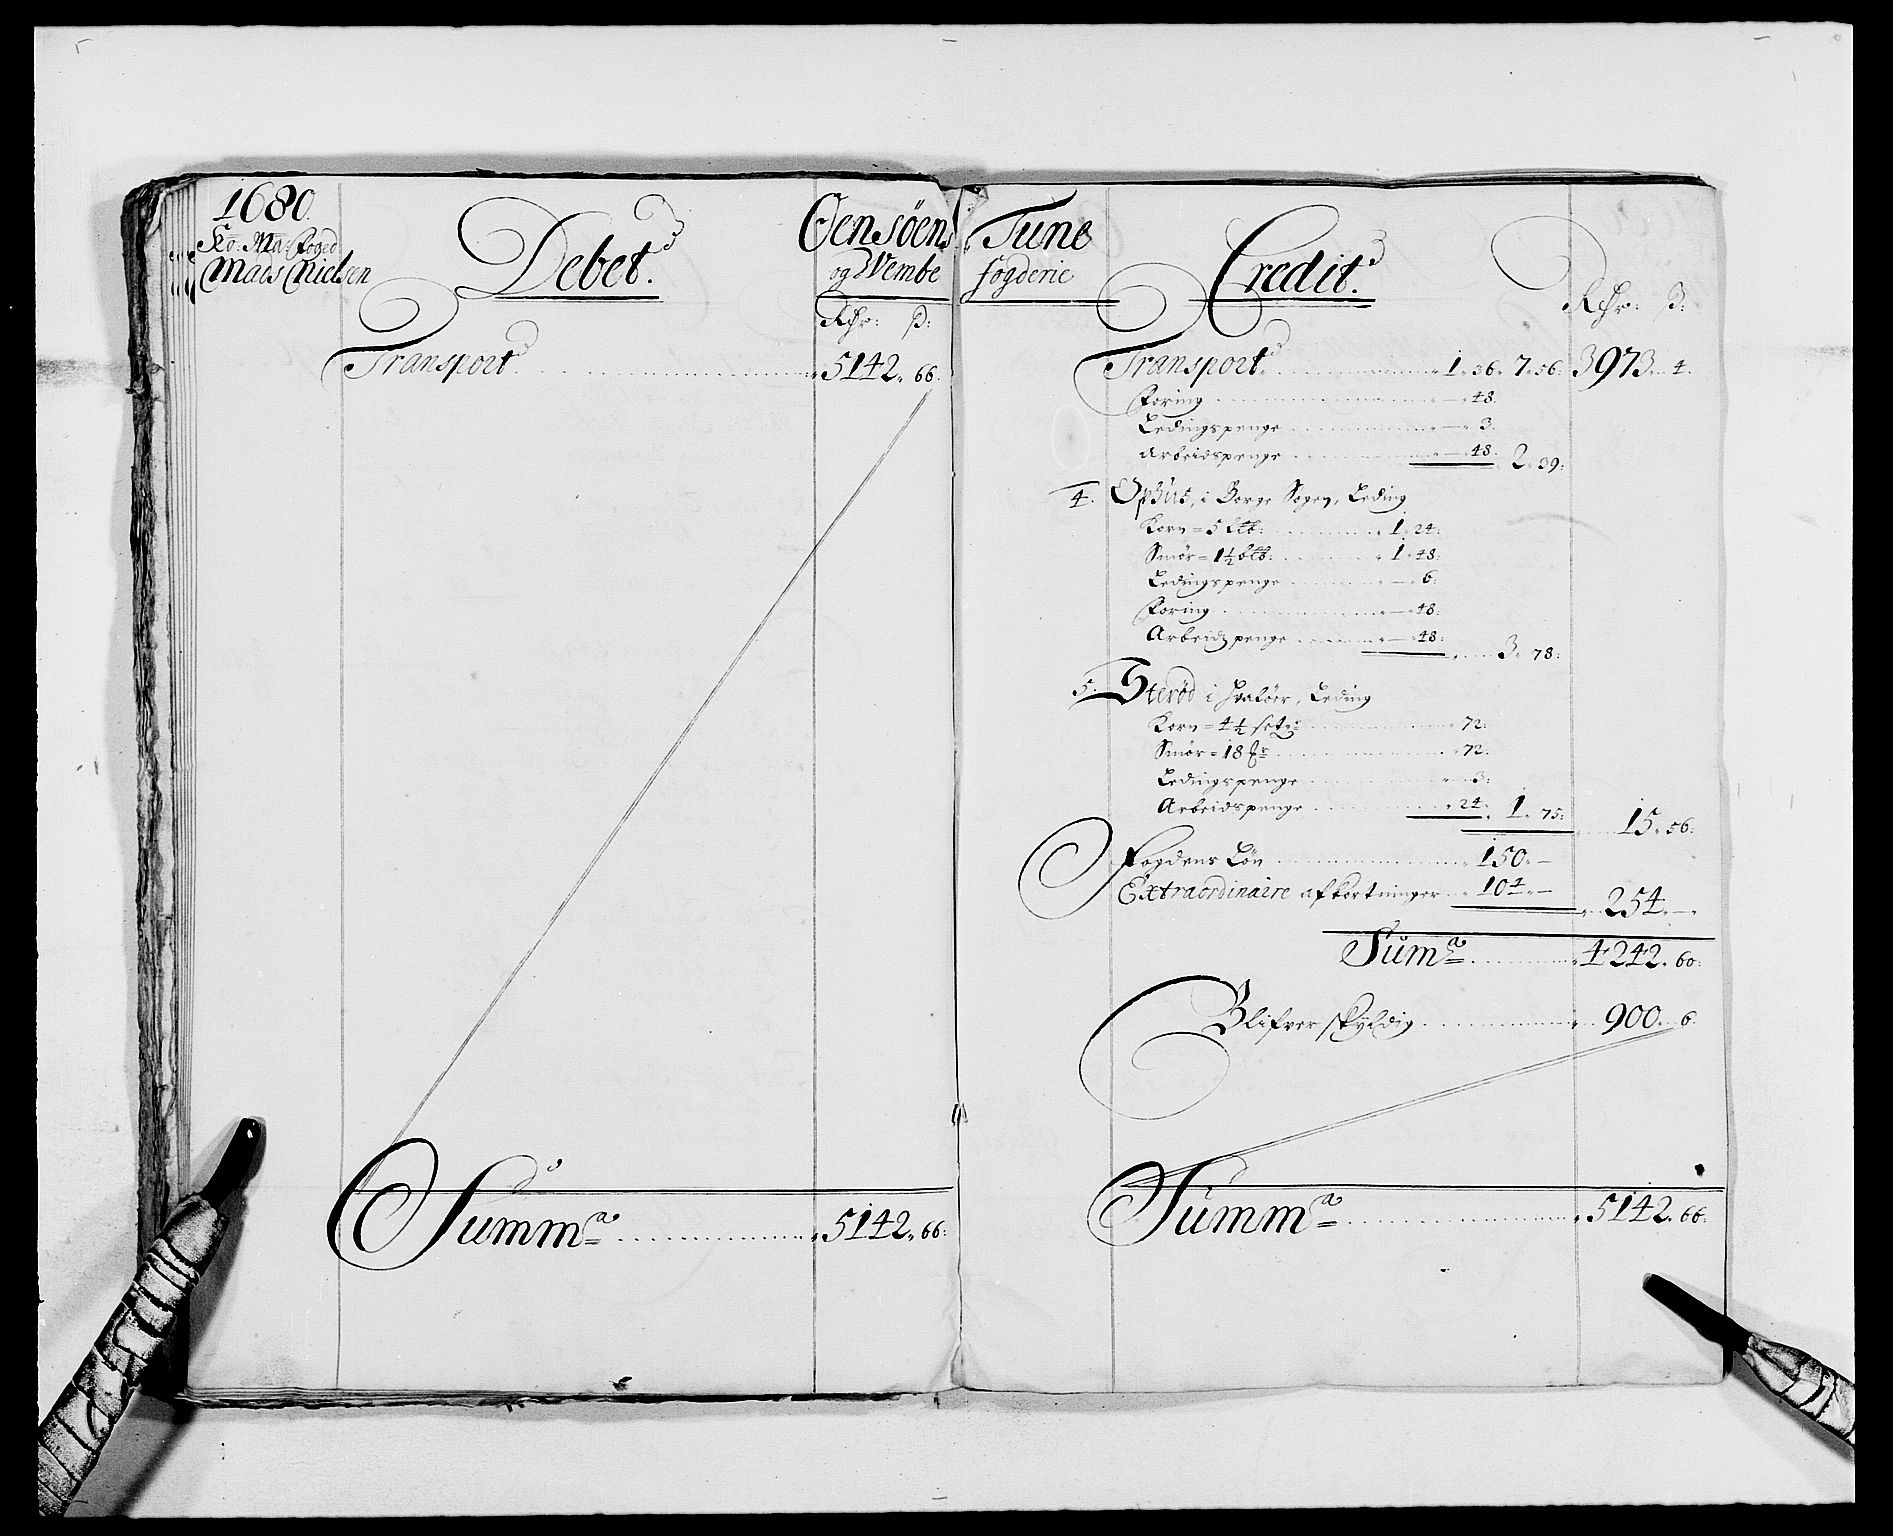 1680.
Ko: Ma: Foged
Mads Nielsen
Debet.
Oensöens
og Wembe
Rdr: ß:
Transport 5142. 66.
Summa 5142. 66.
Tune
fogderie
Credit.
Rdr: ß:
Transport 1. 36. 7. 56. 3973. 4.
Foring 48.
Ledingspenge 3.
Arbeidspenge 48. 2. 39.
4. Ophus, i Borge Sogen, Leding
Korn = 5 1. 24.
Smör = 1½ 1. 48.
Ledingspenge 6.
Foring 48.
Arbeidspenge 48. 3. 78.
5. Steröd i Hvalöer, Leding
Korn = 4½ 72.
Smör = 18 72.
Ledingspenge 3.
Arbeidspenge 24. 1. 75. 15. 56.
Fogdens Lön 150. —
Extraordinaire afkortninger 104. — 254. —
Suma 4242. 60.
Blifver skyldig 900. 6.
Summa 5142. 66.